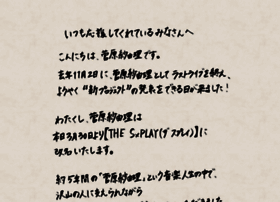 いつも応援してくれているみなさんへ
こんにちは、菅原紗由理です。
去年11月2日に、菅原紗由理としてラストライブを終え、
ようやく“新プロジェクト”の発表をできる日が来ました!
わたくし、菅原紗由理は
本日3月30日より【THE SxPLAY(ザ スプレイ)】に
改名いたします。
約5年間の「菅原紗由理」という音楽人生の中で、
沢山の人に支えられながら